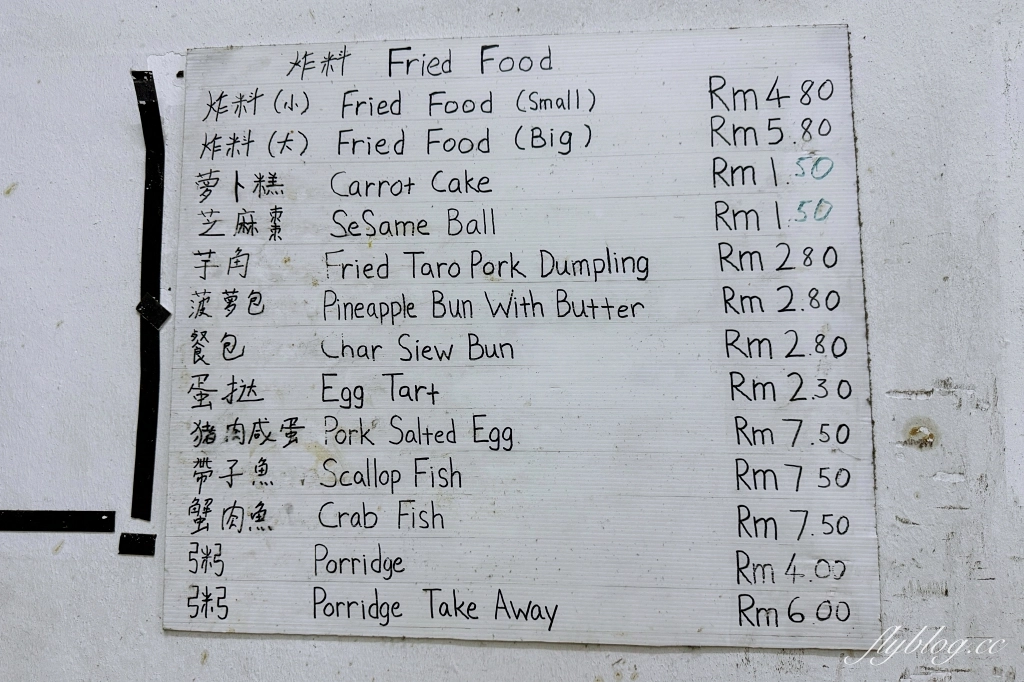 炸料 Fried Food
炸料(小) Fried Food (Small) Rm 4 80
炸料(大) Fried Food (Big) Rm 5.80
萝卜糕 Carrot Cake Rm 1.50
芝麻棗 SeSame Ball Rm 1.50
芋角 Fried Taro Pork Dumpling Rm 2 80
菠萝包 Pineapple Bun With Butter Rm 2.80
餐包 Char Siew Bun Rm 2.80
蛋挞 Egg Tart Rm 2.30
猪肉咸蛋 Pork Salted Egg Rm 7.50
帶子魚 Scallop Fish Rm 7 50
蟹肉魚 Crab Fish Rm 7.50
粥 Porridge Rm 4.00
粥 Porridge Take Away Rm 6 00
flyblog.cc